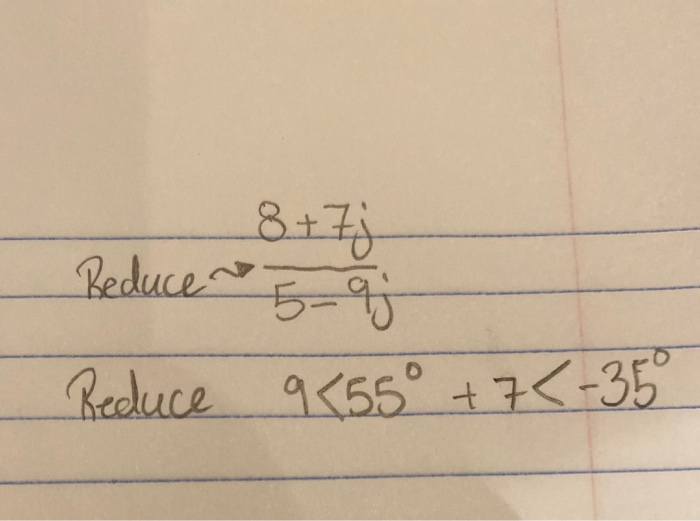 Reduce → 8+7j / 5-9j
Reduce 9<55° + 7<-35°